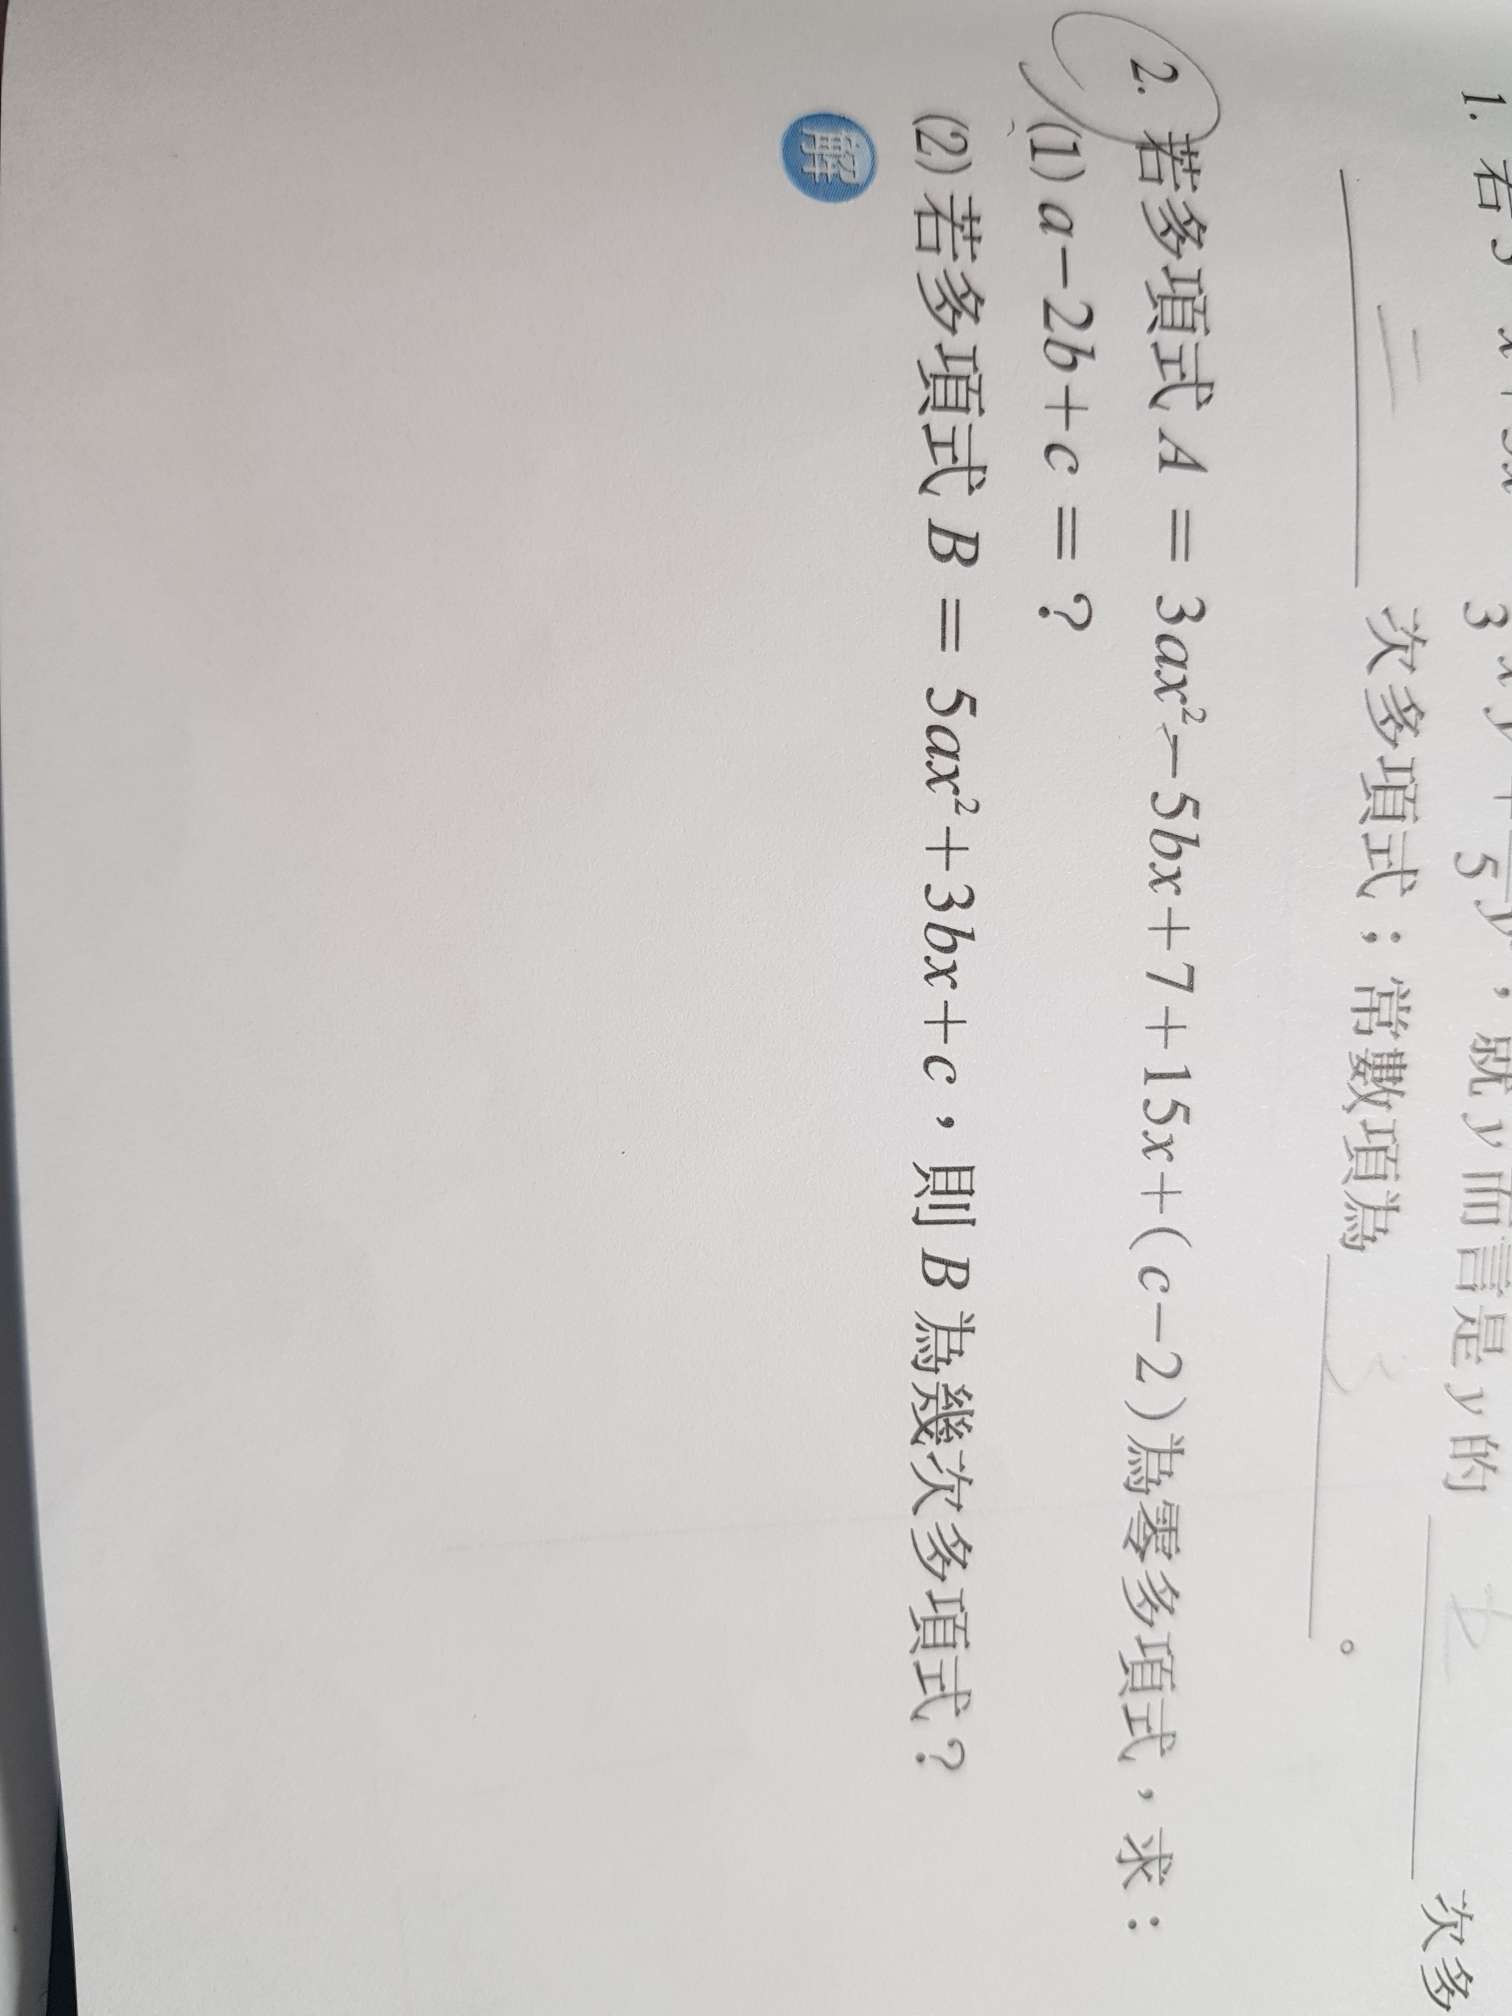 1. 若
二 次多項式；常數項為 。
2. 若多項式 A = 3ax²-5bx+7+15x+(c-2)為零多項式，求：
(1) a-2b+c = ?
(2) 若多項式 B = 5ax²+3bx+c，則 B 為幾次多項式？
解